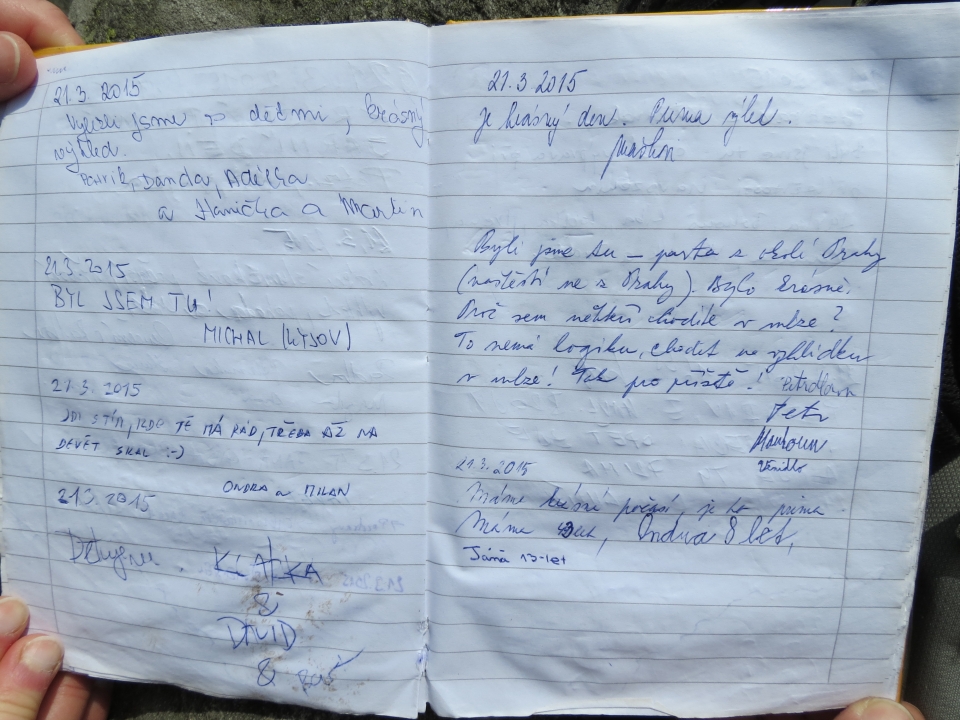 21.3 2015
jsme s dětmi, krásný
výhled.
Patrik, Danda, Adélka
a Hanička a Martin
21.3.2015
BYL JSEM TU!
MICHAL (KYJOV)
21.3.2015
JDI S TÍM, KDO TĚ MÁ RÁD, TŘEBA AŽ NA
DEVĚT SKAL :-)
ONDRA a MILAN
21.3.2015
KLÁRKA
&
DAVID
&
21.3 2015
Je krásný den.
Byli jsme tu – parta z okolí Prahy
(naštěstí ne z Prahy). Bylo krásně.
Proč sem někteří chodíte v mlze?
To nemá logiku, chodit na vyhlídku
v mlze! Tak pro příště!
Petr
21.3.2015
Máme krásné počasí, je to prima.
Máma, Ondra 8 let,